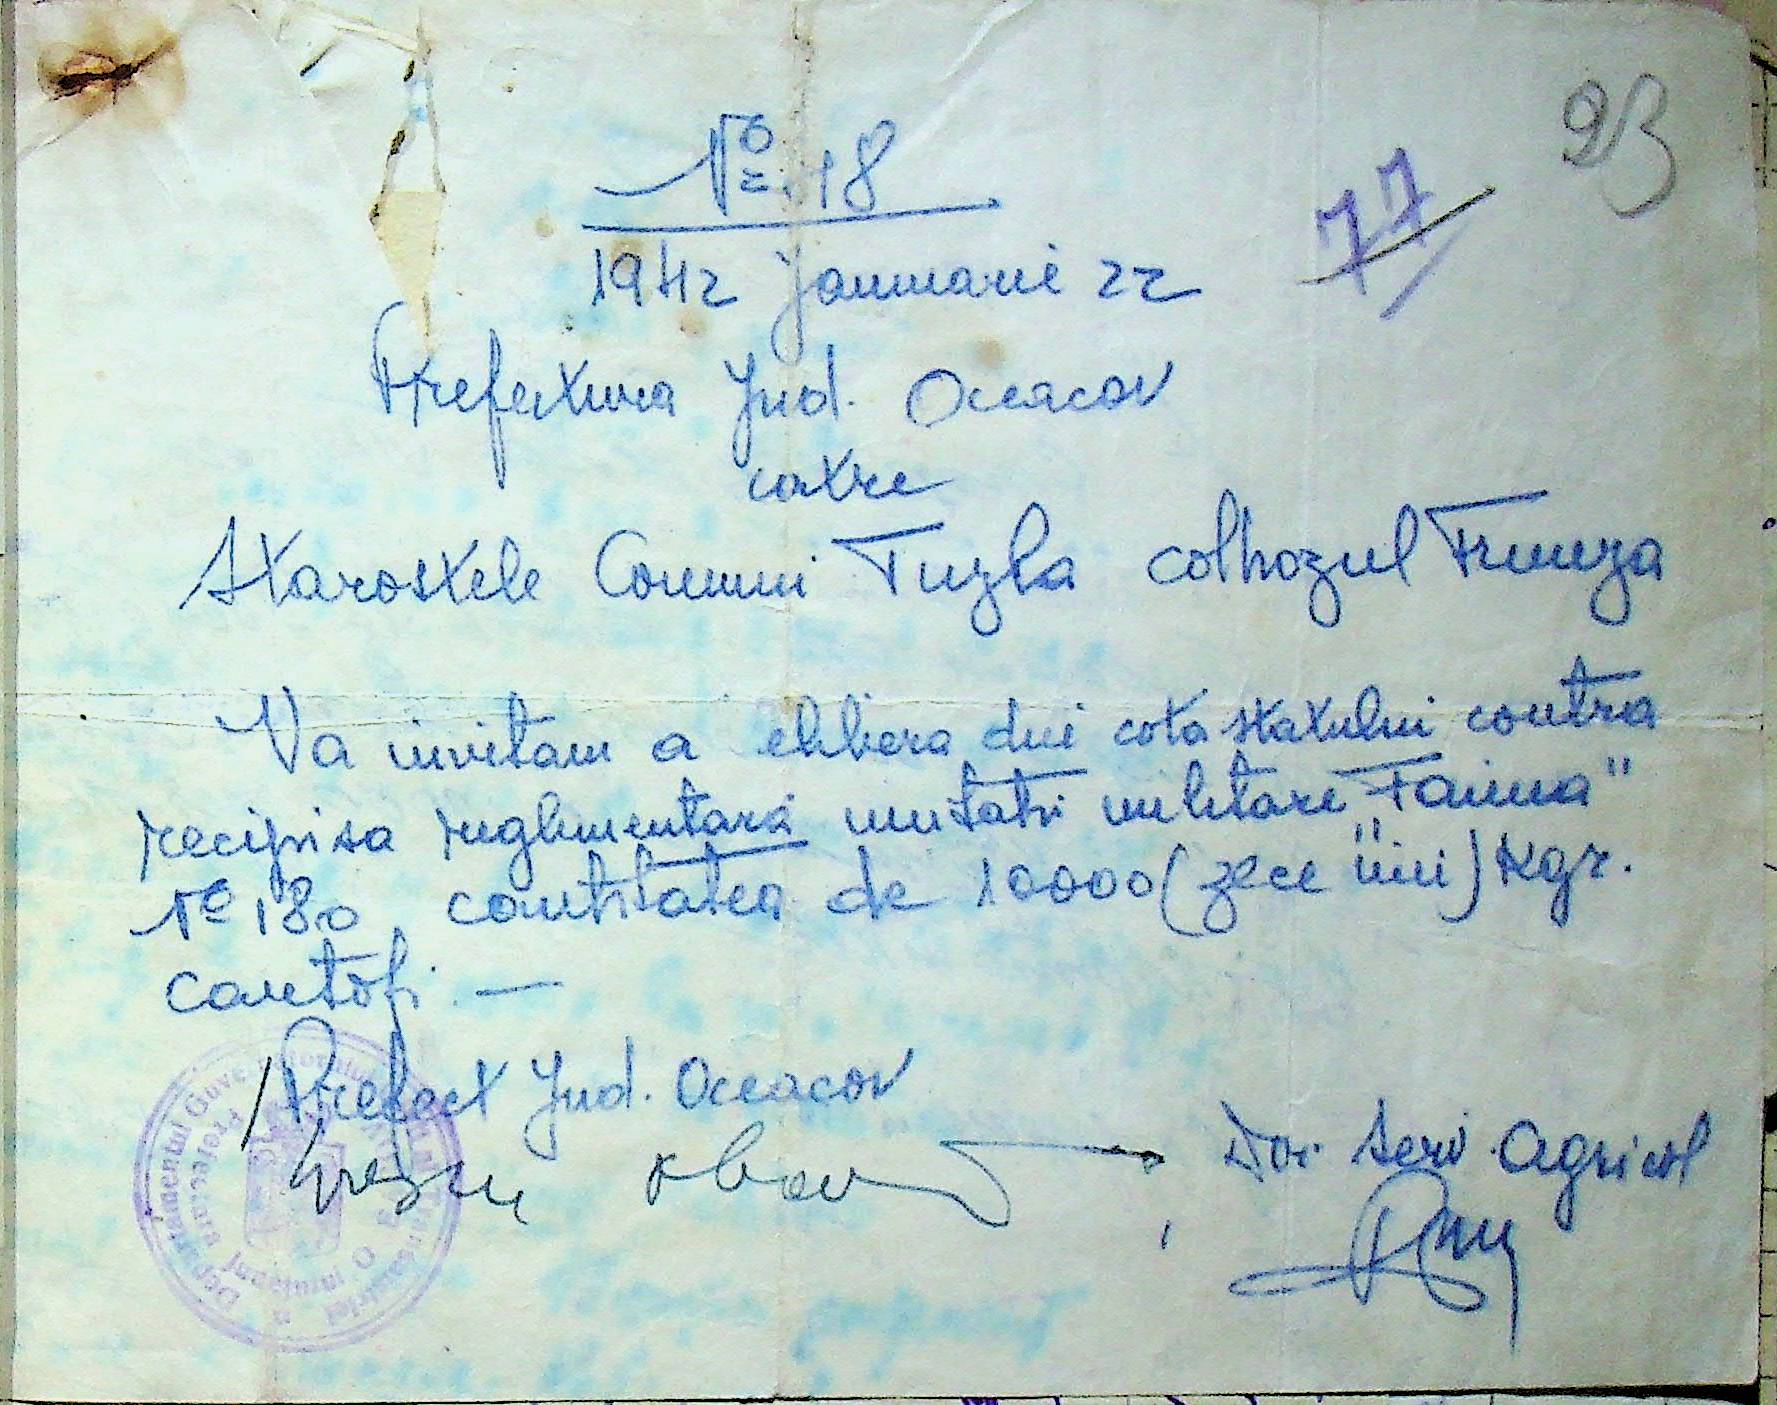 93
77
No 18
1942 Januarie 22
Prefectura Jud. Oceacov
catre
Starostele Comuni Tuzla colhozul Frunza
Va invitam a elibera din cota statului contra
recipisa reglementară unitatii militare "Faima"
No 180 cantitatea de 10000 (zece mii) Kgr.
cartofi. —
Prefect Jud. Oceacov
Dir. Serv. Agricol
Departamentul Guvernatorului Transnistriei
Prefectura Judetului O